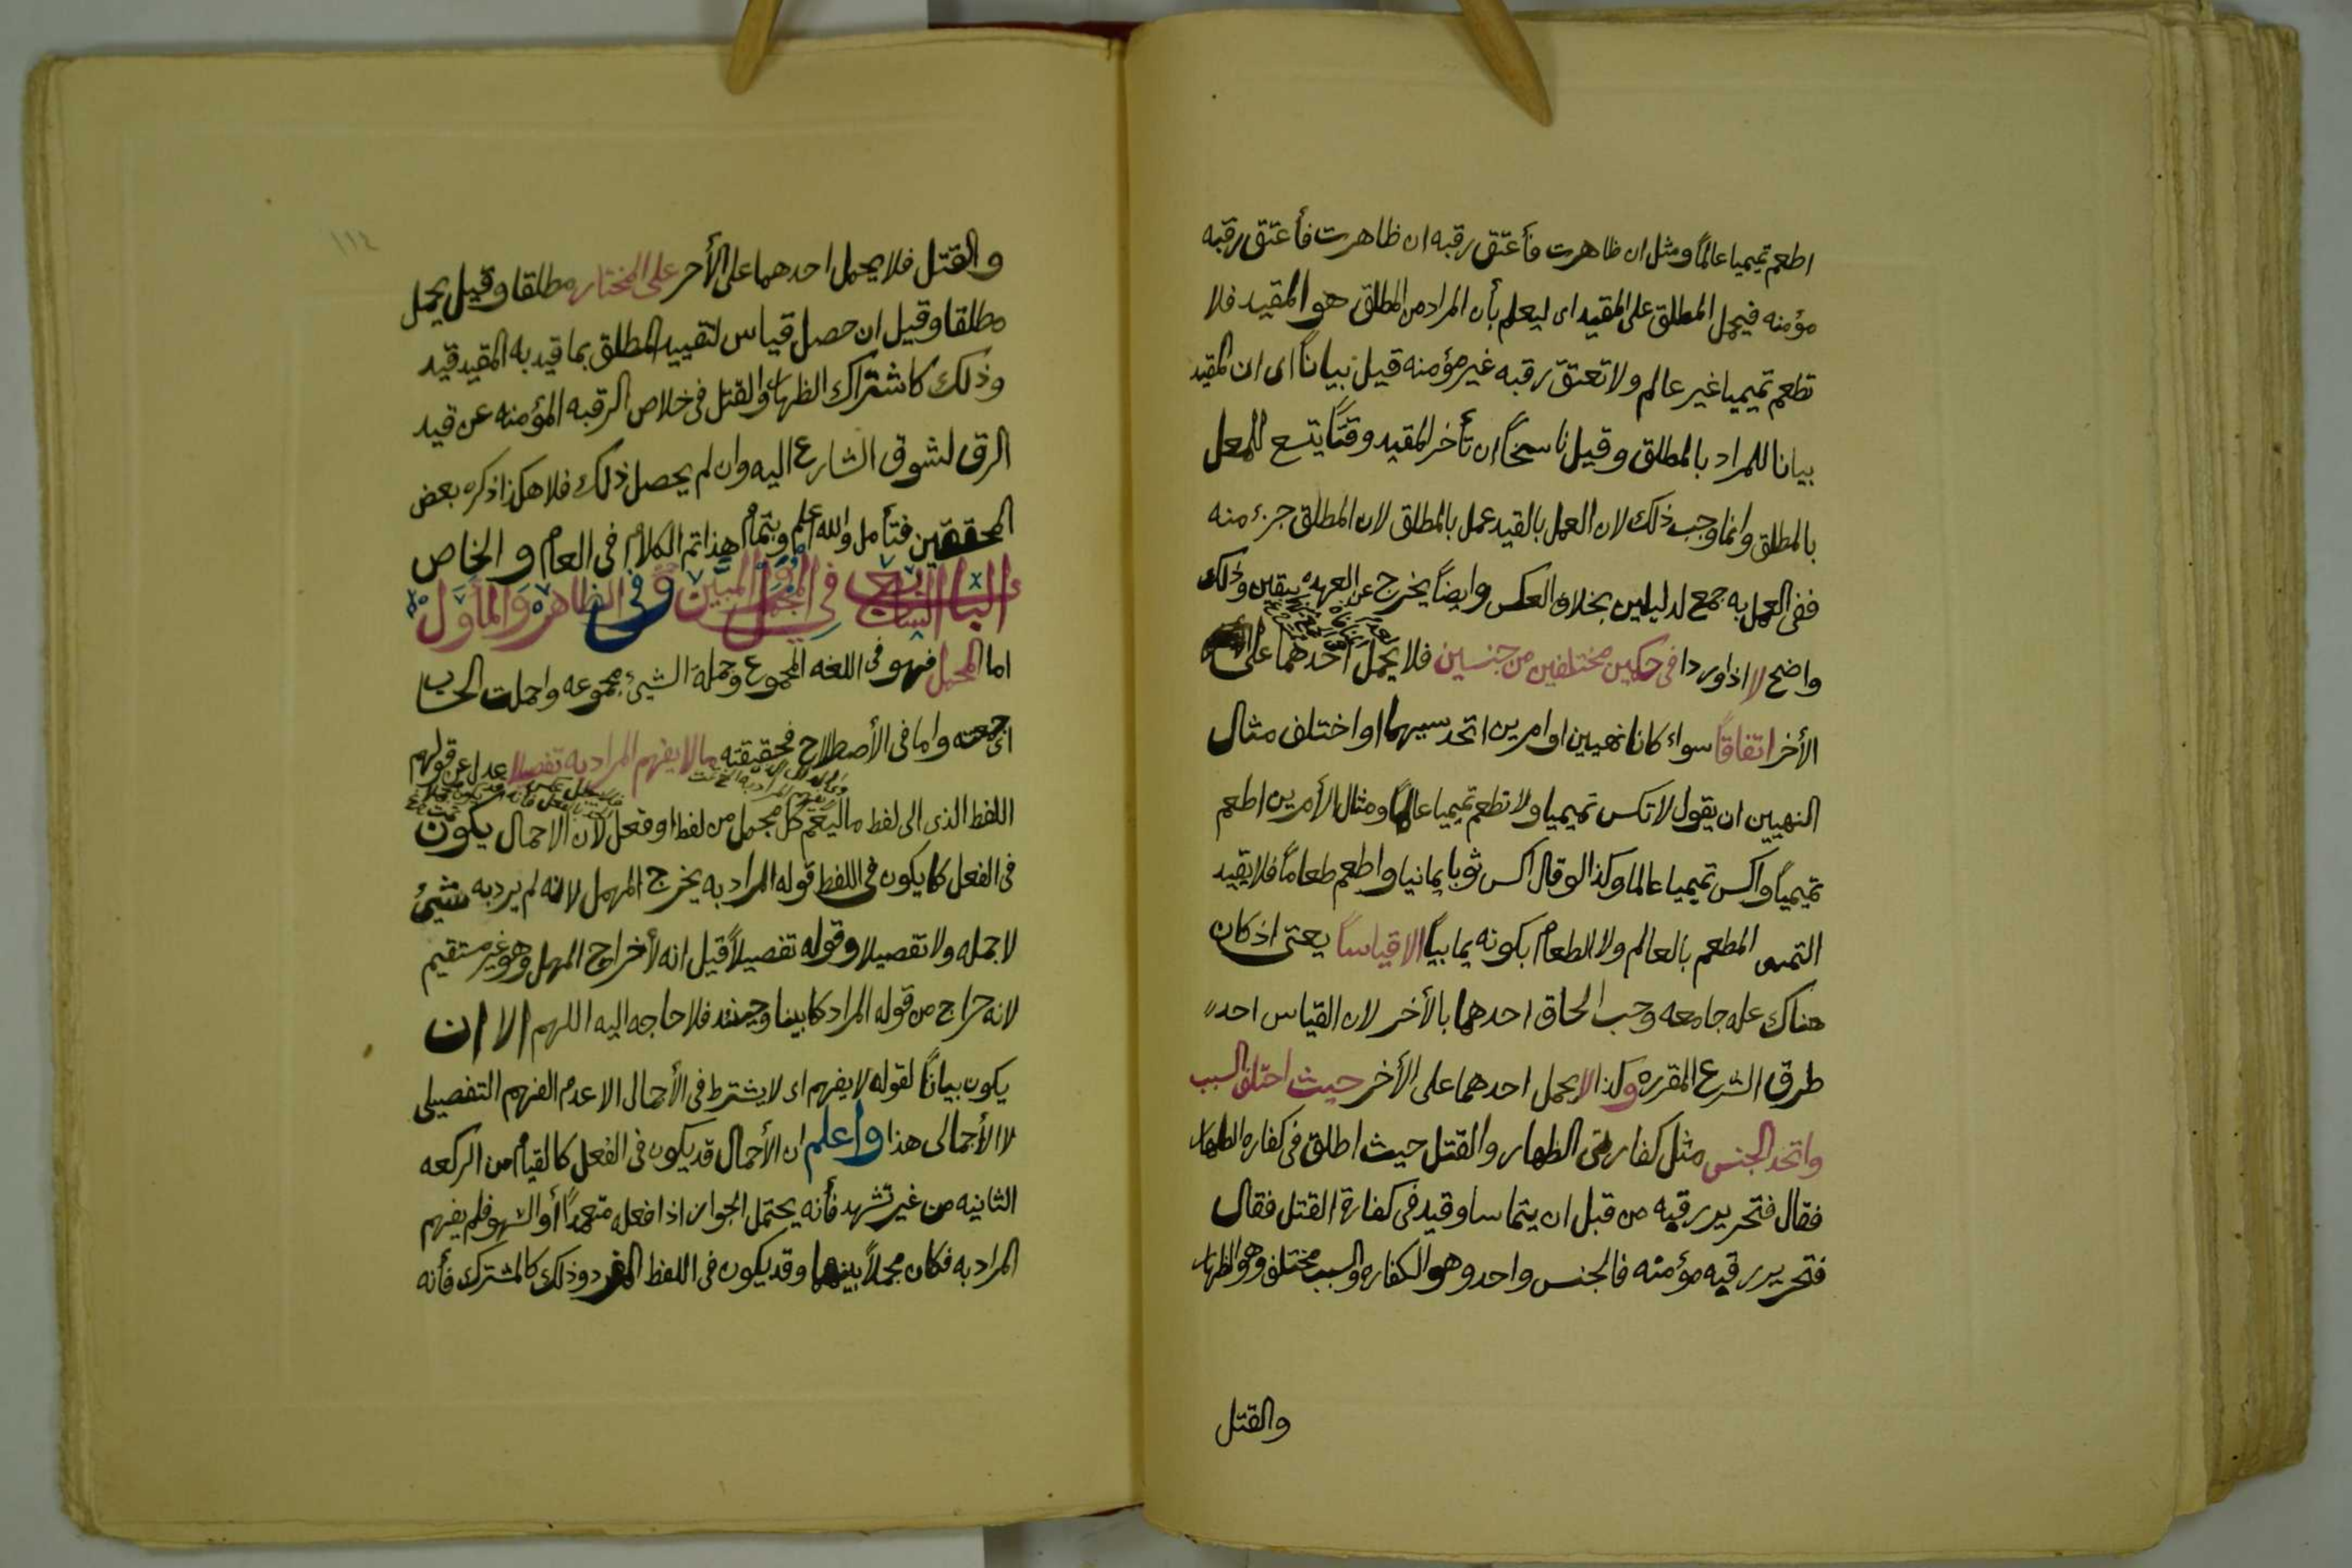 اطعم تميميا عالماً ومثل ان ظاهرت فأعتق رقبه ان ظاهرت فأعتق رقبه
مؤمنه فيحمل المطلق على المقيد اى ليعلم بأن المراد من المطلق هو المقيد فلا
تطعم تميميا غير عالم ولا تعتق رقبه غير مؤمنه قيل بياناً اى ان المقيد
بيانا للمراد بالمطلق وقيل ناسخاً ان تأخر المقيد وقتاً يتسع للعمل
بالمطلق وانما وجب ذلك لان العمل بالقيد عمل بالمطلق لان المطلق جزء منه
ففى العمل به جمع لدليلين بخلاف العكس وايضاً يخرج عن العهده بيقين وذلك
واضح لا اذا وردا فى حكمين مختلفين من جنسين فلا يحمل احدهما على
الأخر اتفاقاً سواء كانا نهيين او امرين اتحد سببهما او اختلف مثال
النهيين ان يقول لا تكس تميميا ولا تطعم تميميا عالماً ومثال الأمرين اطعم
تميمياً واكس تميميا عالما وكذا لو قال اكس ثوبا يمانيا واطعم طعاماً فلا يقيد
التمىمى المطعم بالعالم ولا الطعام بكونه يمانياً الا قياساً يعنى اذ كان
هناك عله جامعه وجب الحاق احدهما بالأخر لان القياس احد
طرق الشرع المقرره وكذا لا يحمل احدهما على الأخر حيث اختلف السبب
واتحد الجنس مثل كفارتى الظهار والقتل حيث اطلق فى كفاره الظهار
فقال فتحرير رقبه من قبل ان يتماسا وقيد فى كفارة القتل فقال
فتحرير رقبه مؤمنه فالجنس واحد وهو الكفاره والسبب مختلف وهو الظهار
والقتل
١١٤
والقتل فلا يحمل احدهما على الأخر على المختار مطلقا وقيل يحمل
مطلقا وقيل ان حصل قياس لتقييد المطلق بما قيد به المقيد قيد
وذلك كاشتراك الظهار والقتل فى خلاص الرقبه المؤمنه عن قيد
الرق لتشوق الشارع اليه وان لم يحصل ذلك فلا هكذا ذكره بعض
المحققين فتأمل والله اعلم وبتمام هذا تم الكلام فى العام والخاص
الباب السابع فى المجمل والمبين وفى الظاهر والمأول
اما المجمل فهو فى اللغه المجموع وجملة الشيء مجموعه واجملت الحساب
اى جمعته واما فى الأصطلاح فحقيقته ما لا يفهم المراد به تفصيلا عدل عن قولهم
اللفظ الذى الى لفظ ما ليعم كل مجمل من لفظ او فعل لأن الاجمال يكون
فى الفعل كما يكون فى اللفظ قوله المراد به يخرج المهمل لانه لم يرد به شيئ
لا جمله ولا تفصيلا وقوله تفصيلاً قيل انه لأخراج المهمل وهو غير مستقيم
لانه خراج من قوله المراد كما بينا وحينئذ فلا حاجه اليه اللهم الا ان
يكون بياناً لقوله لا يفهم اى لا يشترط فى الأجمال الا عدم الفهم التفصيلى
لا الأجمالى هذا واعلم ان الأجمال قد يكون فى الفعل كالقيام من الركعه
الثانيه من غير تشهد فأنه يحتمل الجواز اذا فعله متعمداً أو السهو فلم يفهم
المراد به فكان مجملاً بينهما وقد يكون فى اللفظ المفرد وذلك كالمشترك فأنه